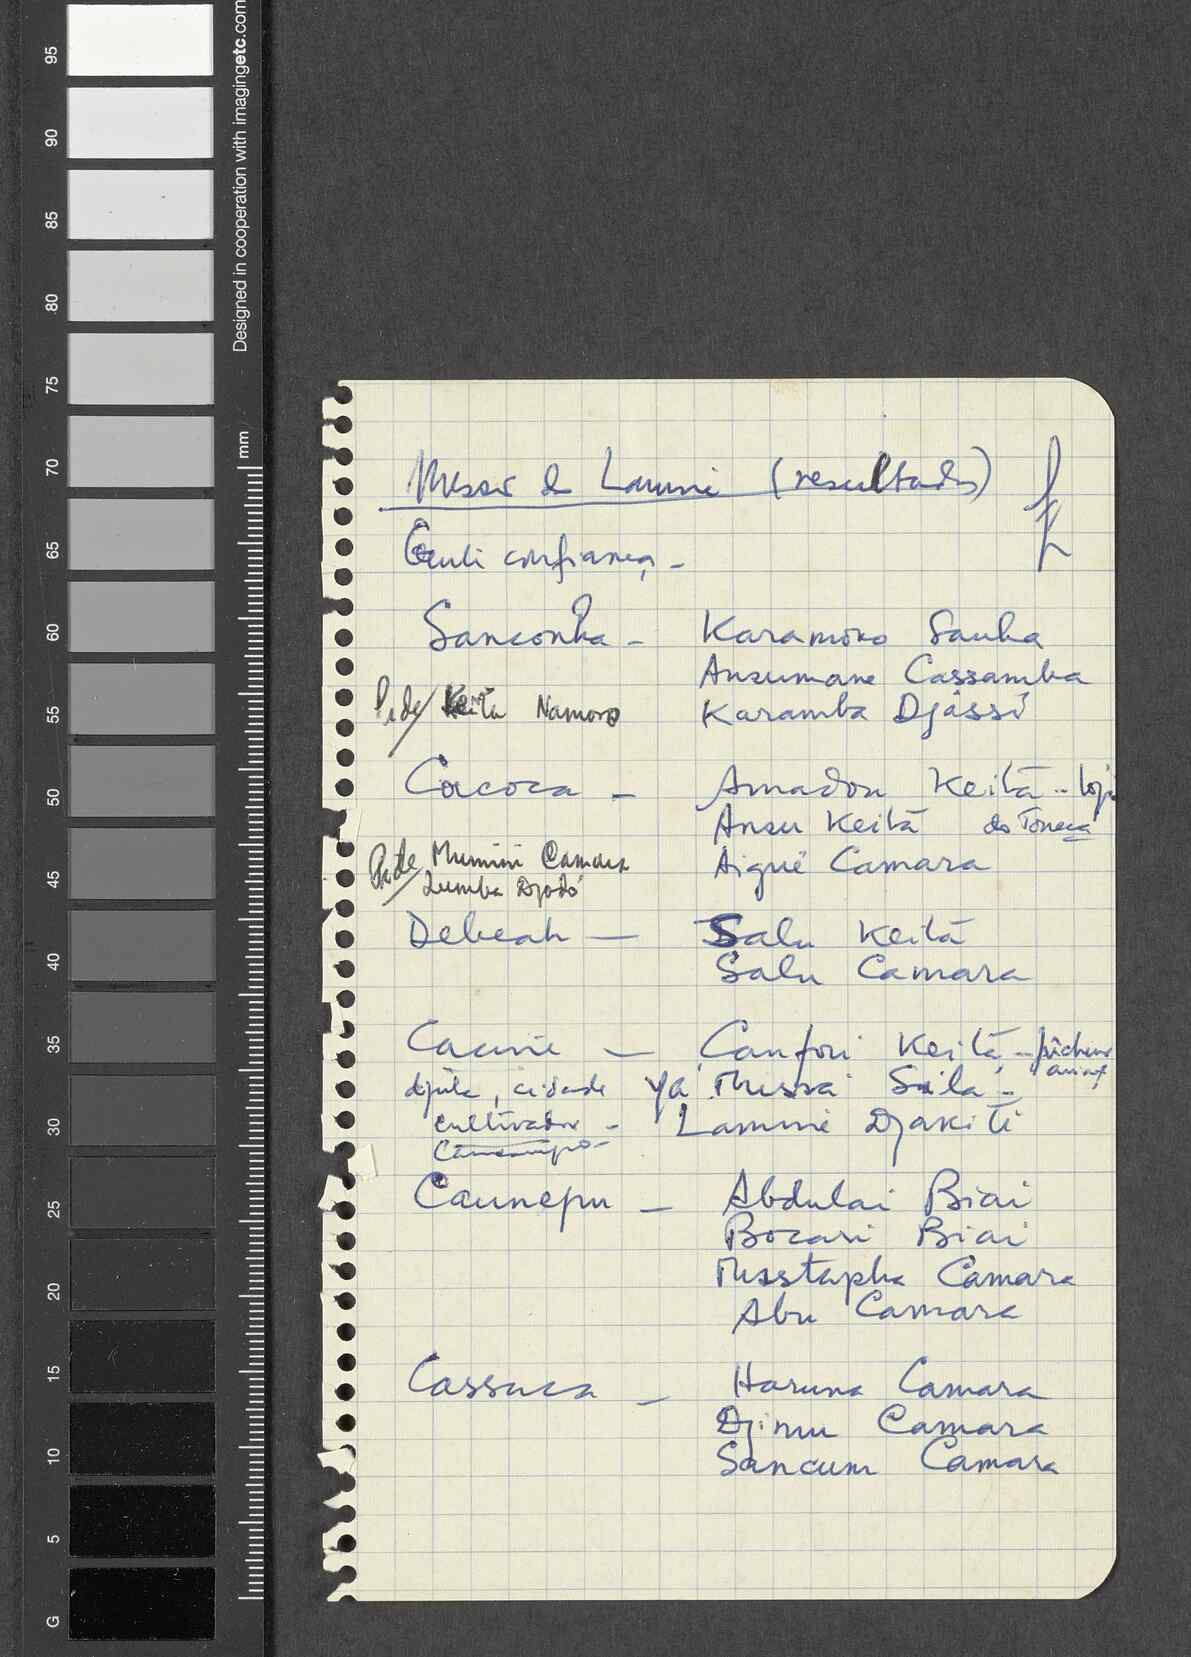 95
90
85
80
75
70
65
60
55
50
45
40
35
30
25
20
15
10
5
G
Designed in cooperation with imagingetc.com
mm
de Lamine (resultados)
confiança -
Sanconha - Karamoko Sanha
Ansumane Cassamba
Pide/ Keitá Namoro Karamba Djássi
Cacoca - Amadou Keitá -
Ansu Keitá do
Pide/ Mumini Camara Aigué Camara
Lumba Djodó
Debeah - Salu Keitá
Salu Camara
Cacine - Canfori Keitá -
djila, cidade Yá Mussá Suila -
cultivador - Lamine Djakiti
Caunepu - Abdulai Biai
Bocari Biai
Mustapha Camara
Abu Camara
Cassaca - Haruna Camara
Djimu Camara
Sancum Camara